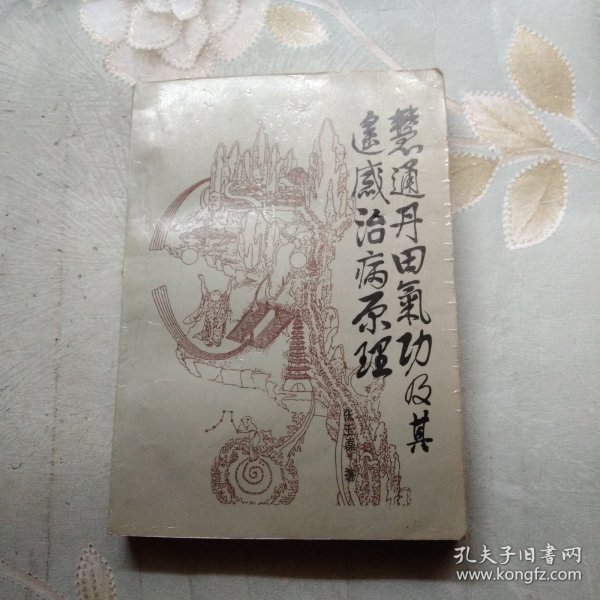 慧通丹田氣功及其
遙感治病原理
张玉 著
孔夫子旧书网
www.kongfz.com